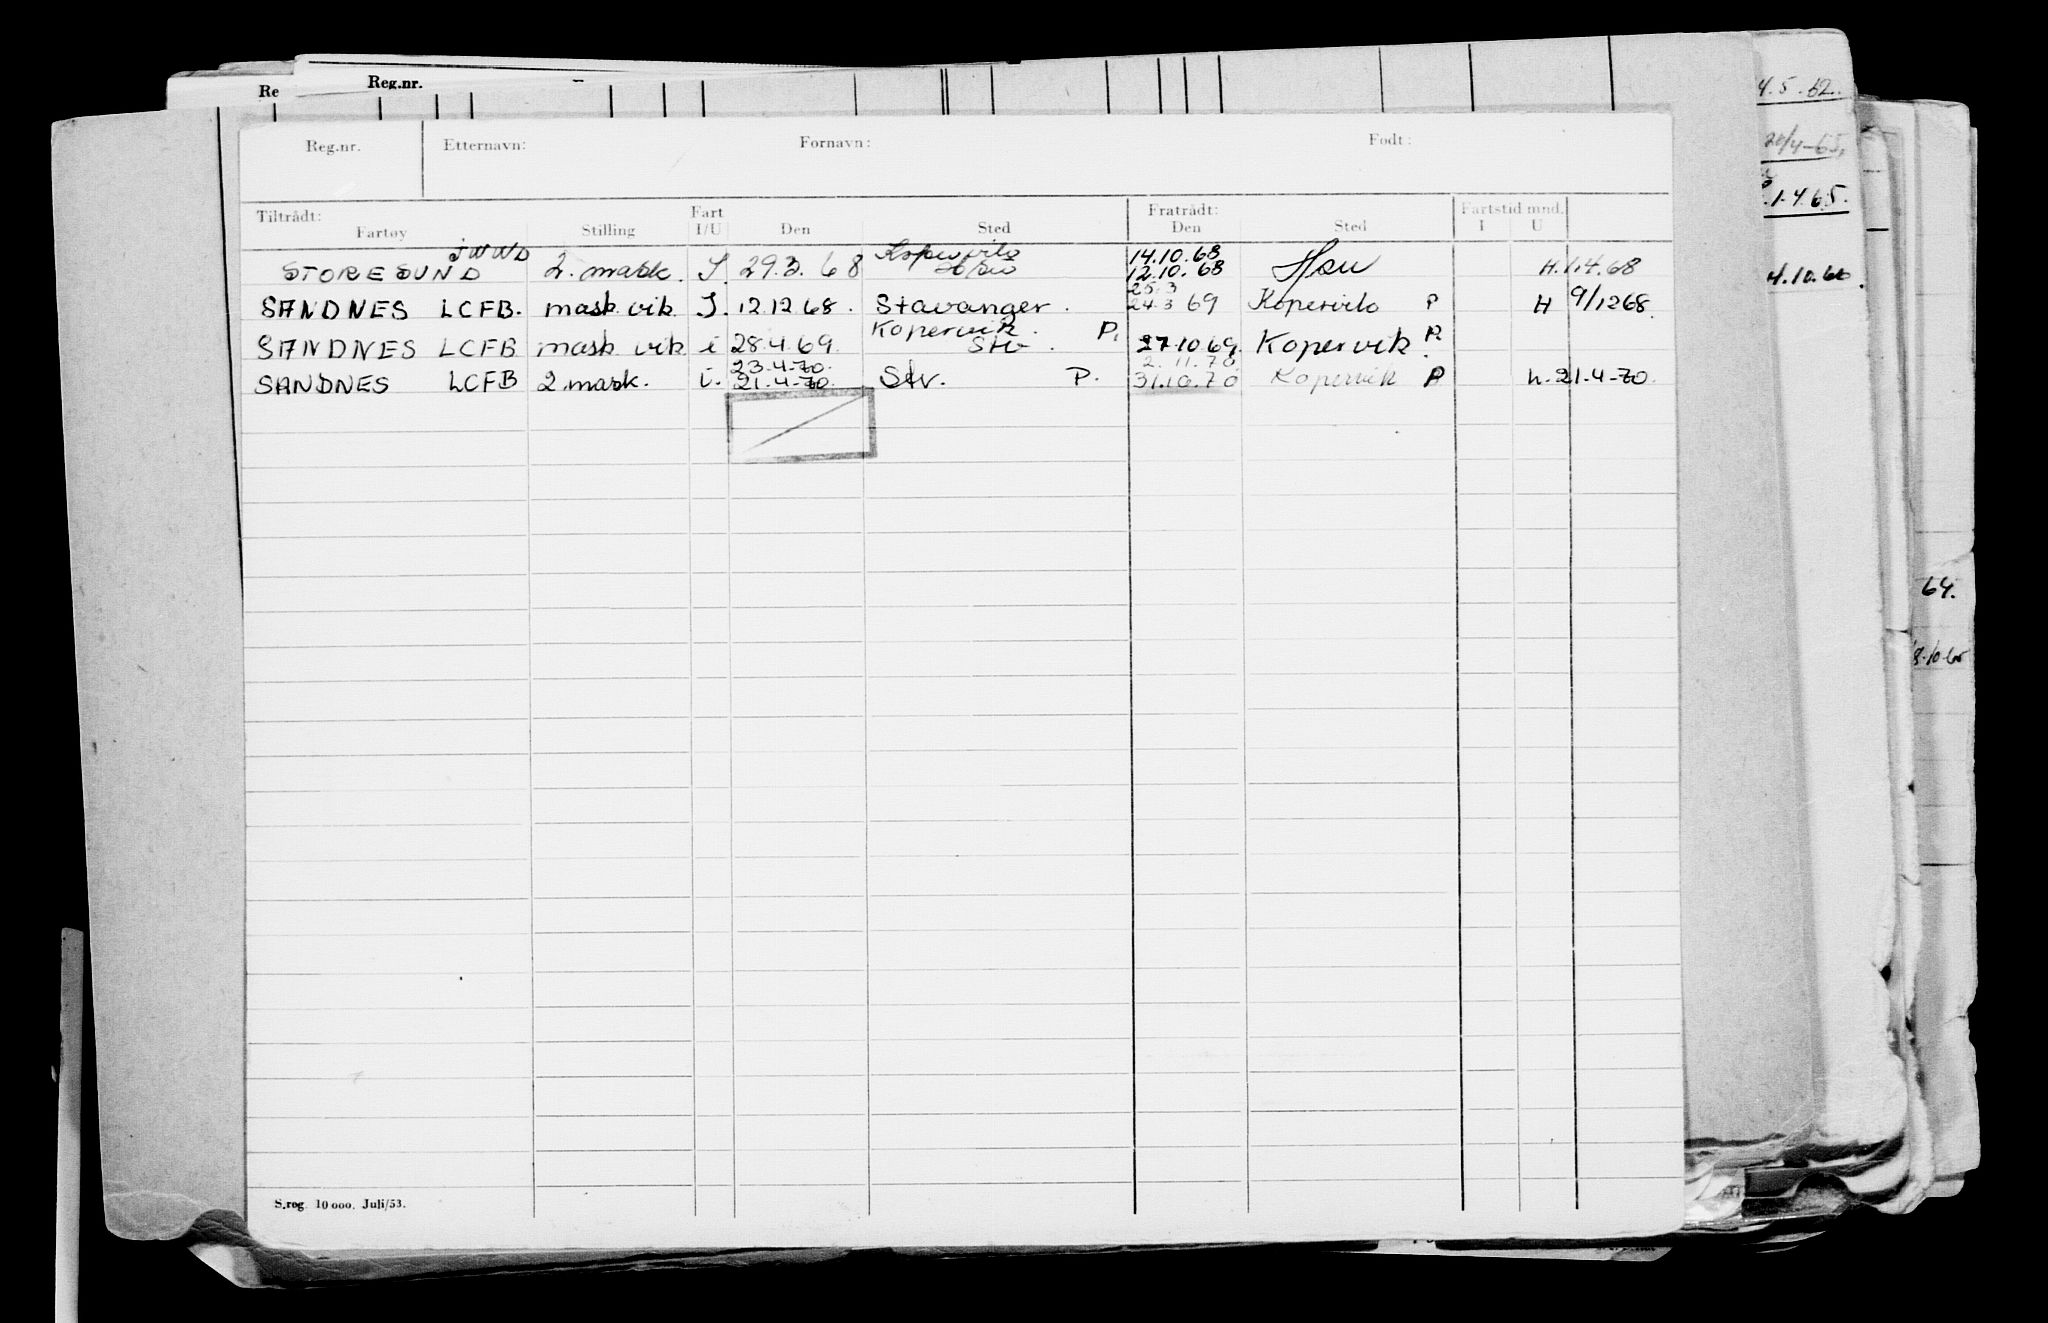 Reg.nr.
Reg.nr. Etternavn: Fornavn: Født:
Tiltrådt: Fart Fratrådt: Fartstid mnd.
Fartøy Stilling I/U Den Sted Den Sted I U
JWWD Kopervik 14.10.68
STORESUND 2. mask. I. 29.3.68 12.10.68 Hau H.1.4.68
25.3
SANDNES LCFB. mask. vik. I. 12.12.68. Stavanger. 24.3 69 Kopervik P H 9/1268.
Kopervik. P.
SANDNES LCFB mask vik i 28.4.69. Stv. 27.10.69. Kopervik P.
23.4-70. 2.11.70
SANDNES LCFB 2.mask. i. 21.4-70. Stv. P. 31.10.70 Kopervik P h.21.4-70.
S.reg. 10 000. Juli/53.
4.5.62.
20/4-65.
1.4.65.
4.10.60.
64.